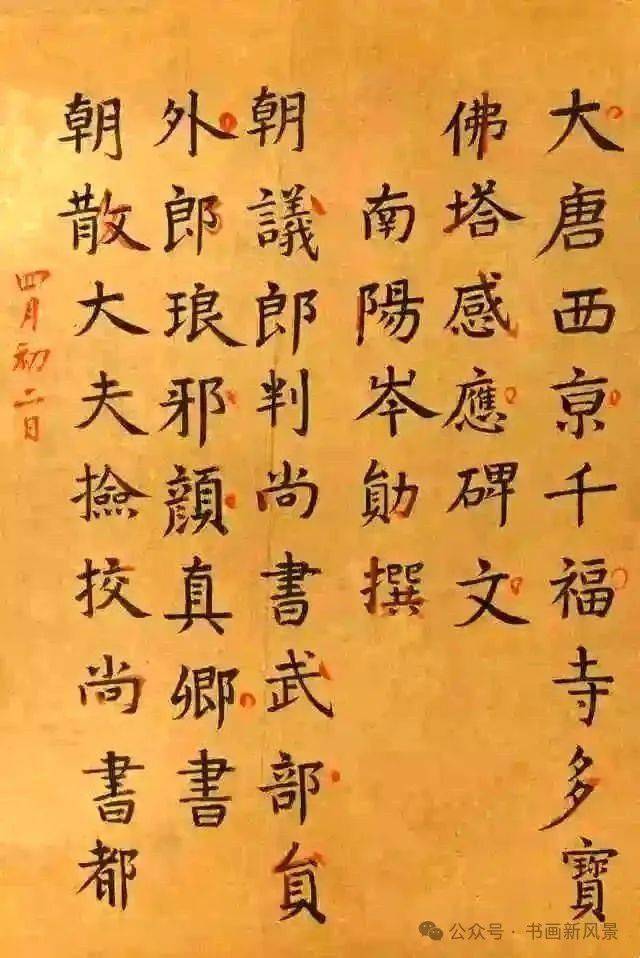 大唐西京千福寺多寶
佛塔感應碑文
南陽岑勛撰
朝議郎判尚書武部貟
外郎琅邪顏真卿書
朝散大夫撿挍尚書都
四月初二日
公众号·书画新风景